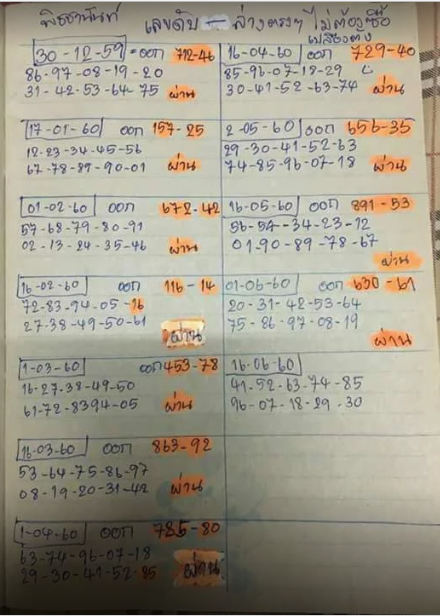 พิชชานันท์ เลขดับ - ล่างตรงๆ ไม่ต้องซื้อ
เปลืองตัง
30-12-59 = ออก 712-46
86-97-08-19-20
31-42-53-64-75 ผ่าน
17-01-60 ออก 157-25
12-23-34-45-56
67-78-89-90-01 ผ่าน
01-02-60 ออก 672-42
57-68-79-80-91
02-13-24-35-46 ผ่าน
16-02-60 ออก 116-14
72-83-94-05-16
27-38-49-50-61 ผ่าน
1-03-60 ออก 453-78
16-27-38-49-50
61-72-8394-05 ผ่าน
16-03-60 ออก 863-92
53-64-75-86-97
08-19-20-31-42 ผ่าน
1-04-60 ออก 785-80
63-74-96-07-18
29-30-41-52-85 ผ่าน
16-04-60 ออก 729-40
85-96-07-18-29
30-41-52-63-74 ผ่าน
2-05-60 ออก 656-35
29-30-41-52-63
74-85-96-07-18 ผ่าน
16-05-60 ออก 891-53
56-54-34-23-12
01-90-89-78-67
ผ่าน
01-06-60 ออก 630-61
20-31-42-53-64
75-86-97-08-19
ผ่าน
16-06-60
41-52-63-74-85
96-07-18-29-30